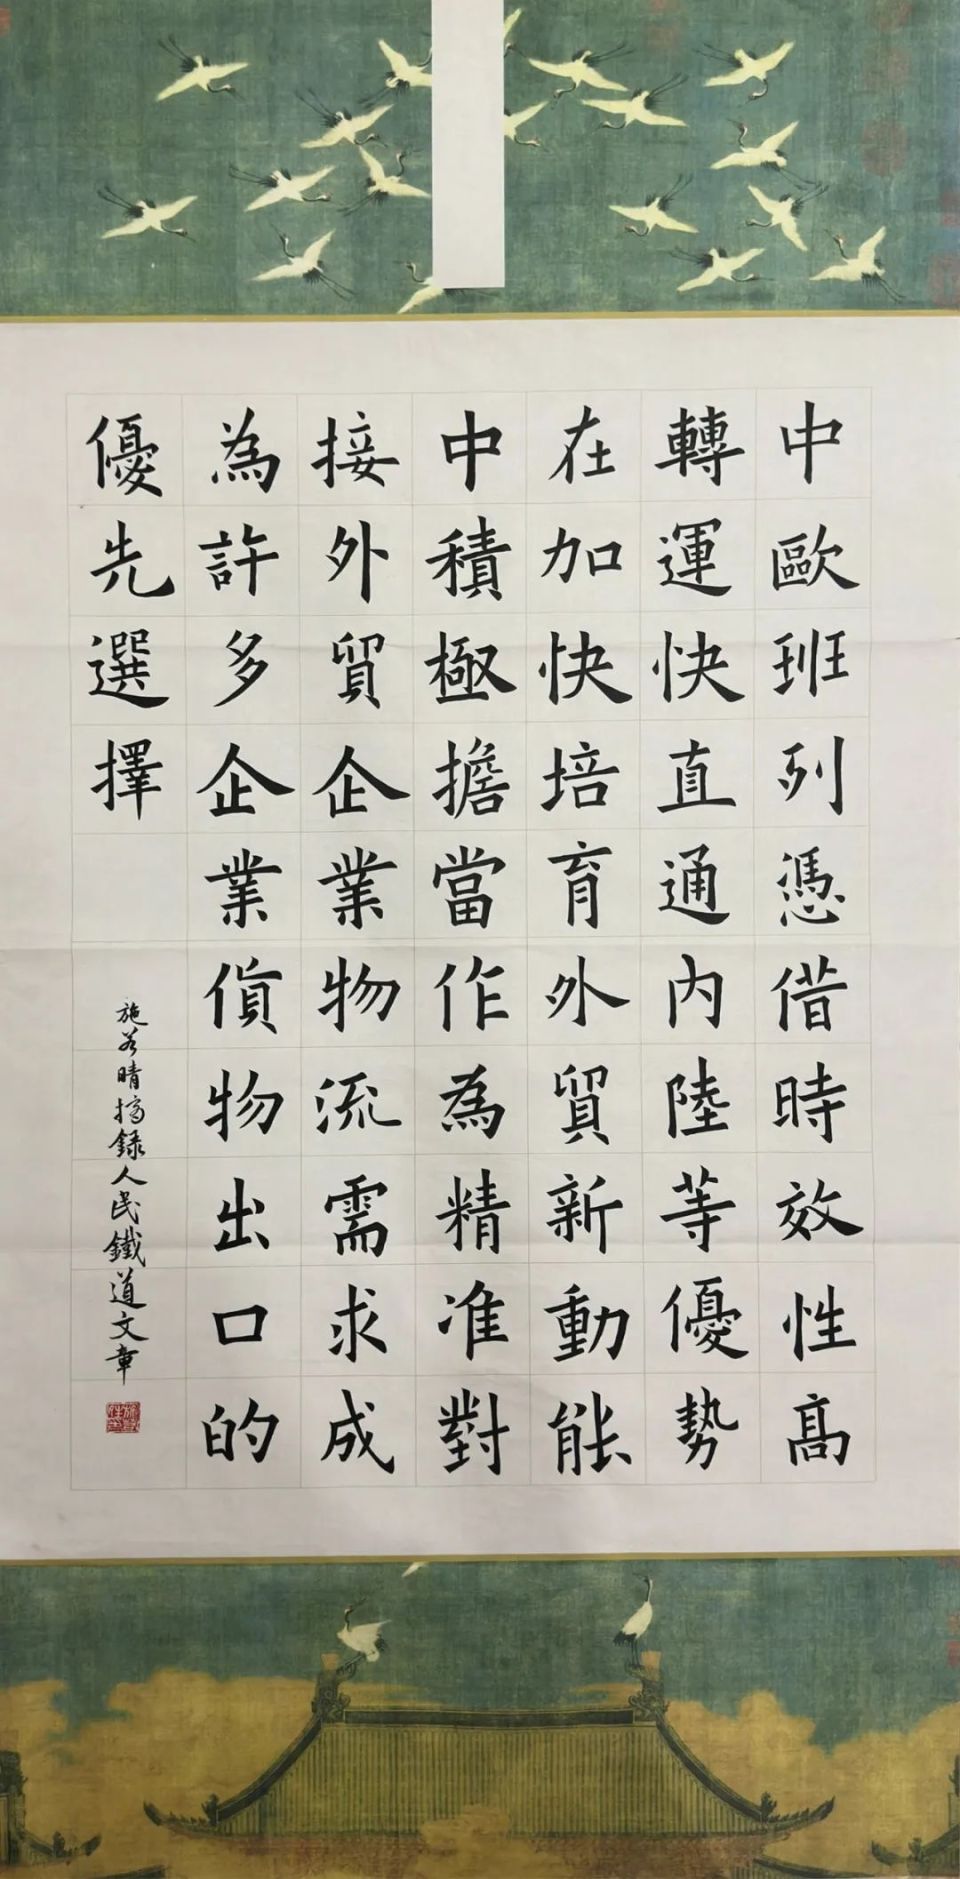 中歐班列憑借時效性高
轉運快直通內陸等優勢
在加快培育外貿新動能
中積極擔當作為精准對
接外貿企業物流需求成
為許多企業貨物出口的
優先選擇
施若晴摘録人民鐵道文章